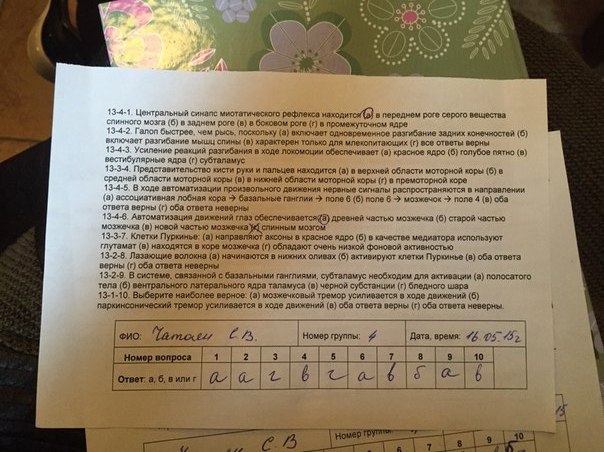 13-4-1. Центральный синапс миотатического рефлекса находится (а) в переднем роге серого вещества
спинного мозга (б) в заднем роге (в) в боковом роге (г) в промежуточном ядре
13-4-2. Галоп быстрее, чем рысь, поскольку (а) включает одновременное разгибание задних конечностей (б)
включает разгибание мышц спины (в) характерен только для млекопитающих (г) все ответы верны
13-4-3. Усиление реакций разгибания в ходе локомоции обеспечивает (а) красное ядро (б) голубое пятно (в)
вестибулярные ядра (г) субталамус
13-3-4. Представительство кисти руки и пальцев находится (а) в верхней области моторной коры (б) в
средней области моторной коры (в) в нижней области моторной коры (г) в премоторной коре
13-4-5. В ходе автоматизации произвольного движения нервные сигналы распространяются в направлении
(а) ассоциативная лобная кора → базальные ганглии → поле 6 (б) поле 6 → мозжечок → поле 4 (в) оба
ответа верны (г) оба ответа неверны
13-4-6. Автоматизация движений глаз обеспечивается (а) древней частью мозжечка (б) старой частью
мозжечка (в) новой частью мозжечка (г) спинным мозгом
13-3-7. Клетки Пуркинье: (а) направляют аксоны в красное ядро (б) в качестве медиатора используют
глутамат (в) находятся в коре мозжечка (г) обладают очень низкой фоновой активностью
13-2-8. Лазающие волокна (а) начинаются в нижних оливах (б) активируют клетки Пуркинье (в) оба ответа
верны (г) оба ответа неверны
13-2-9. В системе, связанной с базальными ганглиями, субталамус необходим для активации (а) полосатого
тела (б) вентрального латерального ядра таламуса (в) черной субстанции (г) бледного шара
13-1-10. Выберите наиболее верное: (а) мозжечковый тремор усиливается в ходе движений (б)
паркинсонический тремор усиливается в ходе движений (в) оба ответа верны (г) оба ответа неверны.
ФИО: Чатоян С.В. Номер группы: 4 Дата, время: 16.05.15г
Номер вопроса 1 2 3 4 5 6 7 8 9 10
Ответ: а, б, в или г а а г в г а в б а в
Номер группы
С.В
6 7 8 9 10